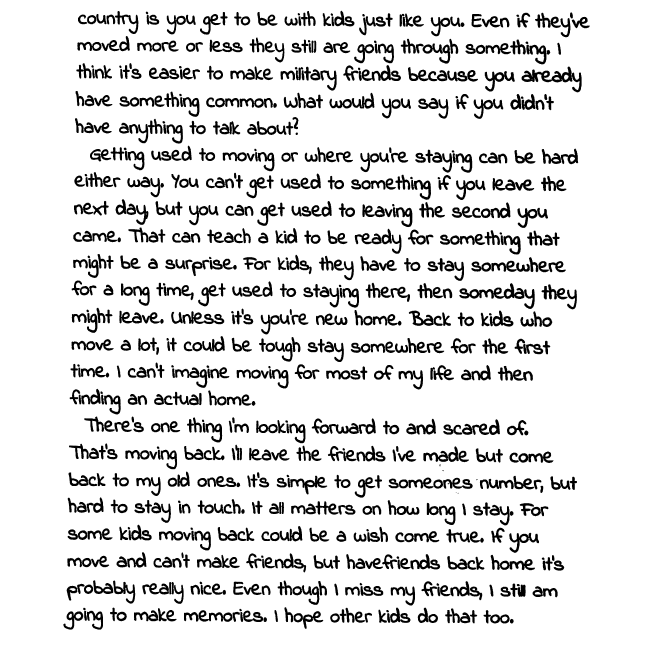 country is you get to be with kids just like you. Even if they've
moved more or less they still are going through something. I
think it's easier to make military friends because you already
have something common. What would you say if you didn't
have anything to talk about?
Getting used to moving or where you're staying can be hard
either way. You can't get used to something if you leave the
next day, but you can get used to leaving the second you
came. That can teach a kid to be ready for something that
might be a surprise. For kids, they have to stay somewhere
for a long time, get used to staying there, then someday they
might leave. Unless it's you're new home. Back to kids who
move a lot, it could be tough stay somewhere for the first
time. I can't imagine moving for most of my life and then
finding an actual home.
There's one thing I'm looking forward to and scared of.
That's moving back. I'll leave the friends I've made but come
back to my old ones. It's simple to get someones number, but
hard to stay in touch. It all matters on how long I stay. For
some kids moving back could be a wish come true. If you
move and can't make friends, but havefriends back home it's
probably really nice. Even though I miss my friends, I still am
going to make memories. I hope other kids do that too.